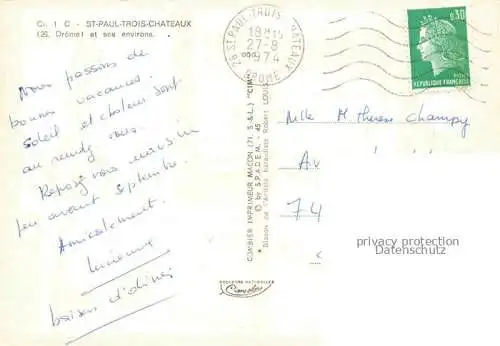 Ci. 1 C - ST-PAUL-TROIS-CHATEAUX
(26. Drôme) et ses environs.
Nous passons de
bonnes vacances.
Soleil et chaleur sont
au rendez vous.
Reposez vous aussi un
peu avant septembre.
Amicalement.
bises d'
26 ST PAUL-TROIS-CHATEAUX
18H15
27-8
1974
DROME
0,30
REPUBLIQUE FRANÇAISE
COMBIER IMPRIMEUR MACON (71. S.-&-L.) "CIM"
© by S.P.A.D.E.M. - 45
Dessin de l'Artiste héraldiste Robert LOUIS
COULEURS NATURELLES
Combier
Mlle M. Thérèse Champy
Av
74
privacy protection
Datenschutz